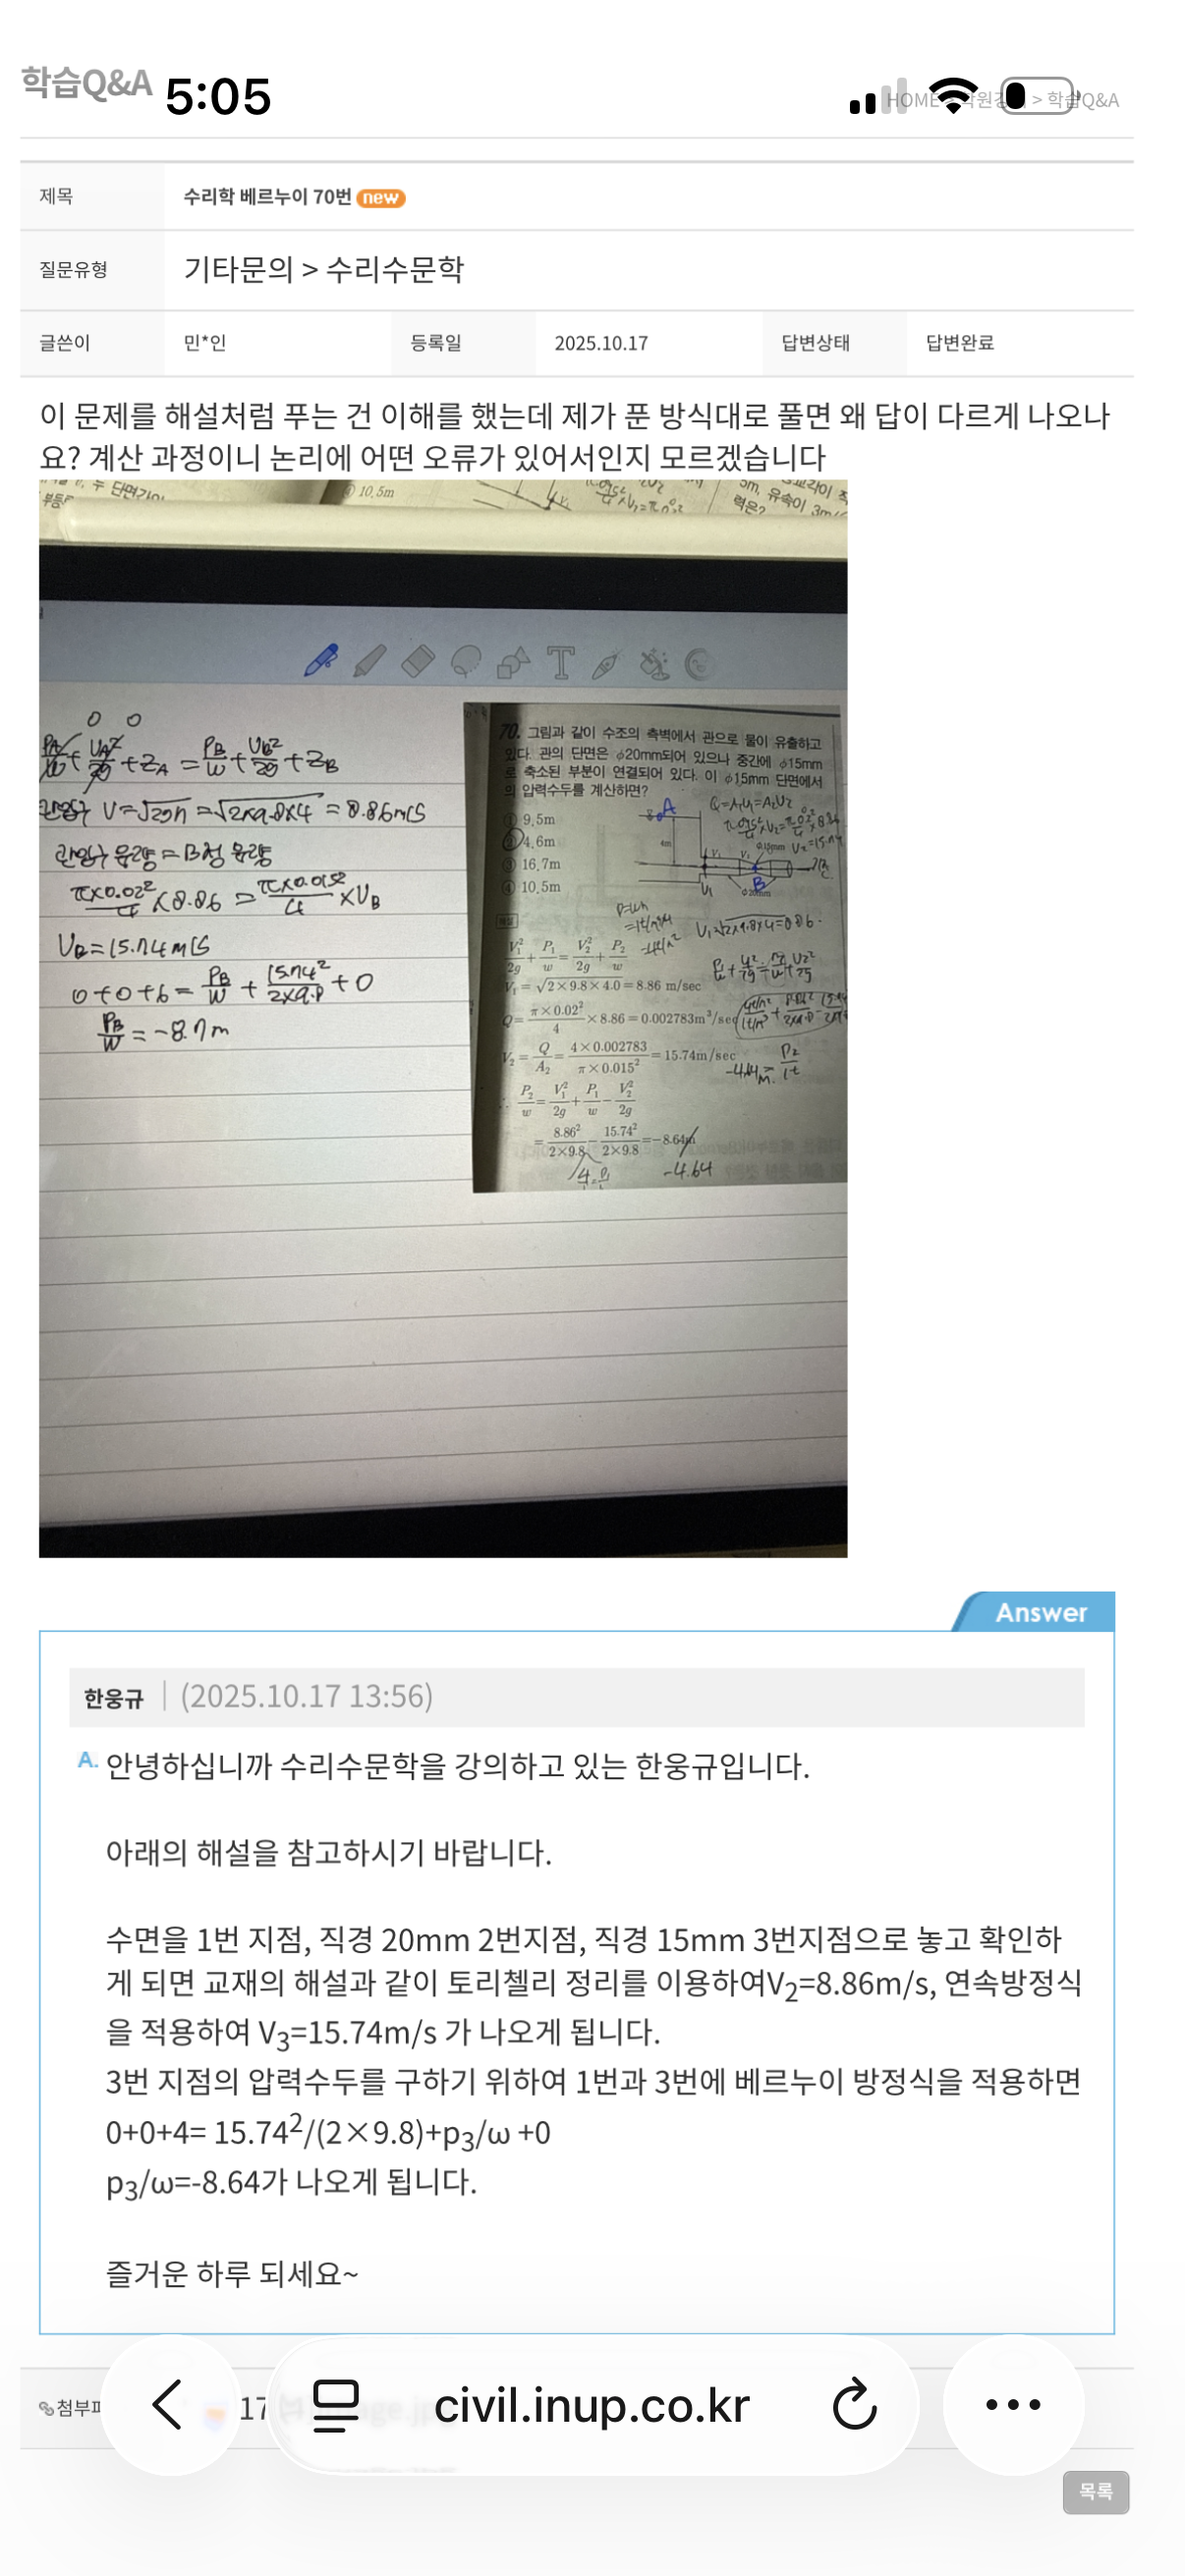 학습Q&A
5:05
HOME
> 학습Q&A
제목
수리학 베르누이 70번 new
질문유형
기타문의 > 수리수문학
글쓴이
민*인
등록일
2025.10.17
답변상태
답변완료
이 문제를 해설처럼 푸는 건 이해를 했는데 제가 푼 방식대로 풀면 왜 답이 다르게 나오나
요? 계산 과정이니 논리에 어떤 오류가 있어서인지 모르겠습니다
10.5m
5m, 유속이 3m/
력은?
0 0
+ZA = PB/W + UB²/2g + ZB
V=√2gh =√2×9.8×4 = 8.86m/s
관입구 유량 = B점 유량
π×0.02²/4 ×8.86 = π×0.015²/4 ×UB
UB=15.74m/s
0+0+6= PB/W + 15.74²/2×9.8 +0
PB/W = -8.7m
70. 그림과 같이 수조의 측벽에서 관으로 물이 유출하고
있다. 관의 단면은 φ20mm되어 있으나 중간에 φ15mm
로 축소된 부분이 연결되어 있다. 이 φ15mm 단면에서
의 압력수두를 계산하면?
① 9.5m
② 4.6m
③ 16.7m
④ 10.5m
A
4m
φ15mm
B
φ20mm
Q=A₁V₁=A₂V₂
해설
V₁²/2g + P₁/w = V₂²/2g + P₂/w
V₁=√2×9.8×4.0=8.86 m/sec
Q= π×0.02²/4 ×8.86=0.002783m³/sec
V₂= Q/A₂ = 4×0.002783/π×0.015² =15.74m/sec
∴ P₂/w = V₁²/2g + P₁/w − V₂²/2g
= 8.86²/2×9.8 − 15.74²/2×9.8 =−8.64m
-4.64
Answer
한웅규 | (2025.10.17 13:56)
A. 안녕하십니까 수리수문학을 강의하고 있는 한웅규입니다.
아래의 해설을 참고하시기 바랍니다.
수면을 1번 지점, 직경 20mm 2번지점, 직경 15mm 3번지점으로 놓고 확인하
게 되면 교재의 해설과 같이 토리첼리 정리를 이용하여V₂=8.86m/s, 연속방정식
을 적용하여 V₃=15.74m/s 가 나오게 됩니다.
3번 지점의 압력수두를 구하기 위하여 1번과 3번에 베르누이 방정식을 적용하면
0+0+4= 15.74²/(2×9.8)+p₃/ω +0
p₃/ω=-8.64가 나오게 됩니다.
즐거운 하루 되세요~
첨부파
17
civil.inup.co.kr
목록